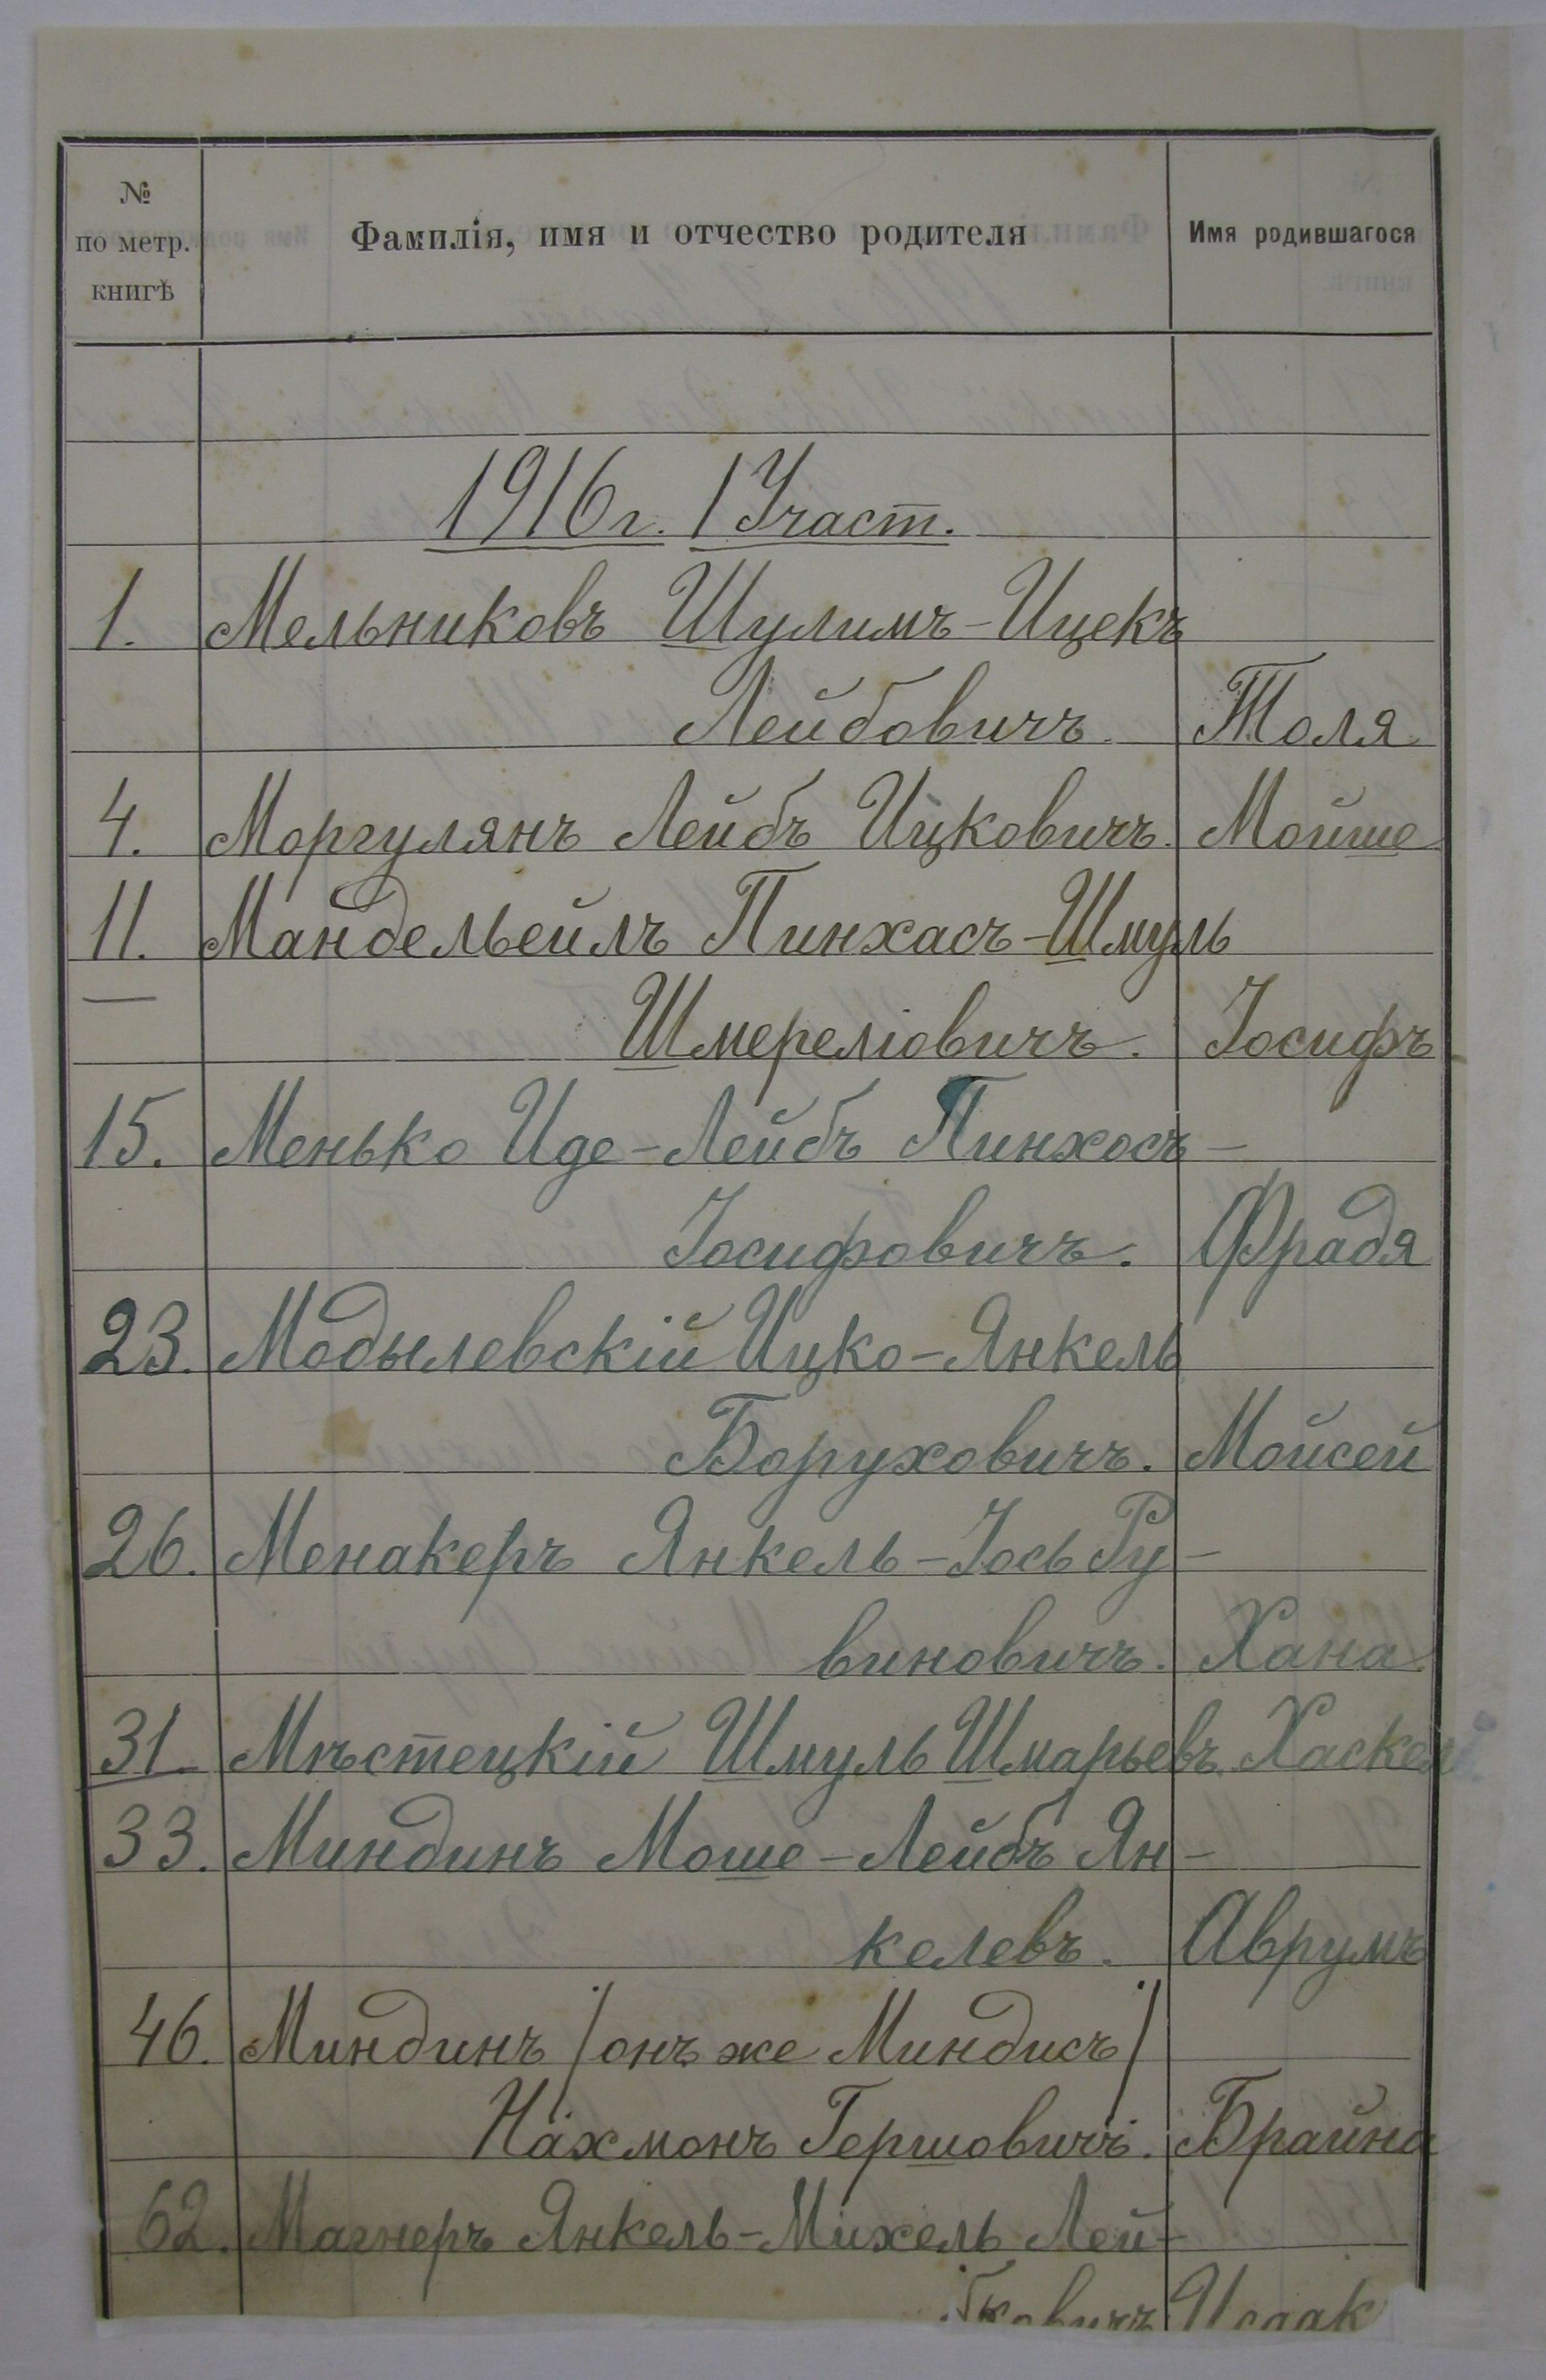 №
по метр.
книгѣ
Фамилія, имя и отчество родителя
Имя родившагося
1916 г. 1 Участ.
1. Мельниковъ Шулимъ-Ицекъ
Лейбовичъ. Толя
4. Моргулянъ Лейбъ Ицковичъ. Мойше
11. Мандельейлъ Пинхасъ-Шмуль
— Шмереліовичъ. Іосифъ
15. Менько Иде-Лейбъ Пинхосъ-
Іосифовичъ. Фрадя
23. Модылевскій Ицко-Янкель
Боруховичъ. Мойсей
26. Менакеръ Янкель-Іось Ру-
виновичъ. Хана
31. Мѣстецкій Шмуль Шмарьевъ Хаскел
33. Миндинъ Моше-Лейбъ Ян-
келевъ. Аврумъ
46. Миндинъ /онъ же Миндисъ/
Нахмонъ Гершовичъ. Брайна
62. Магнеръ Янкель-Михель Лей-
бковичъ Исаак